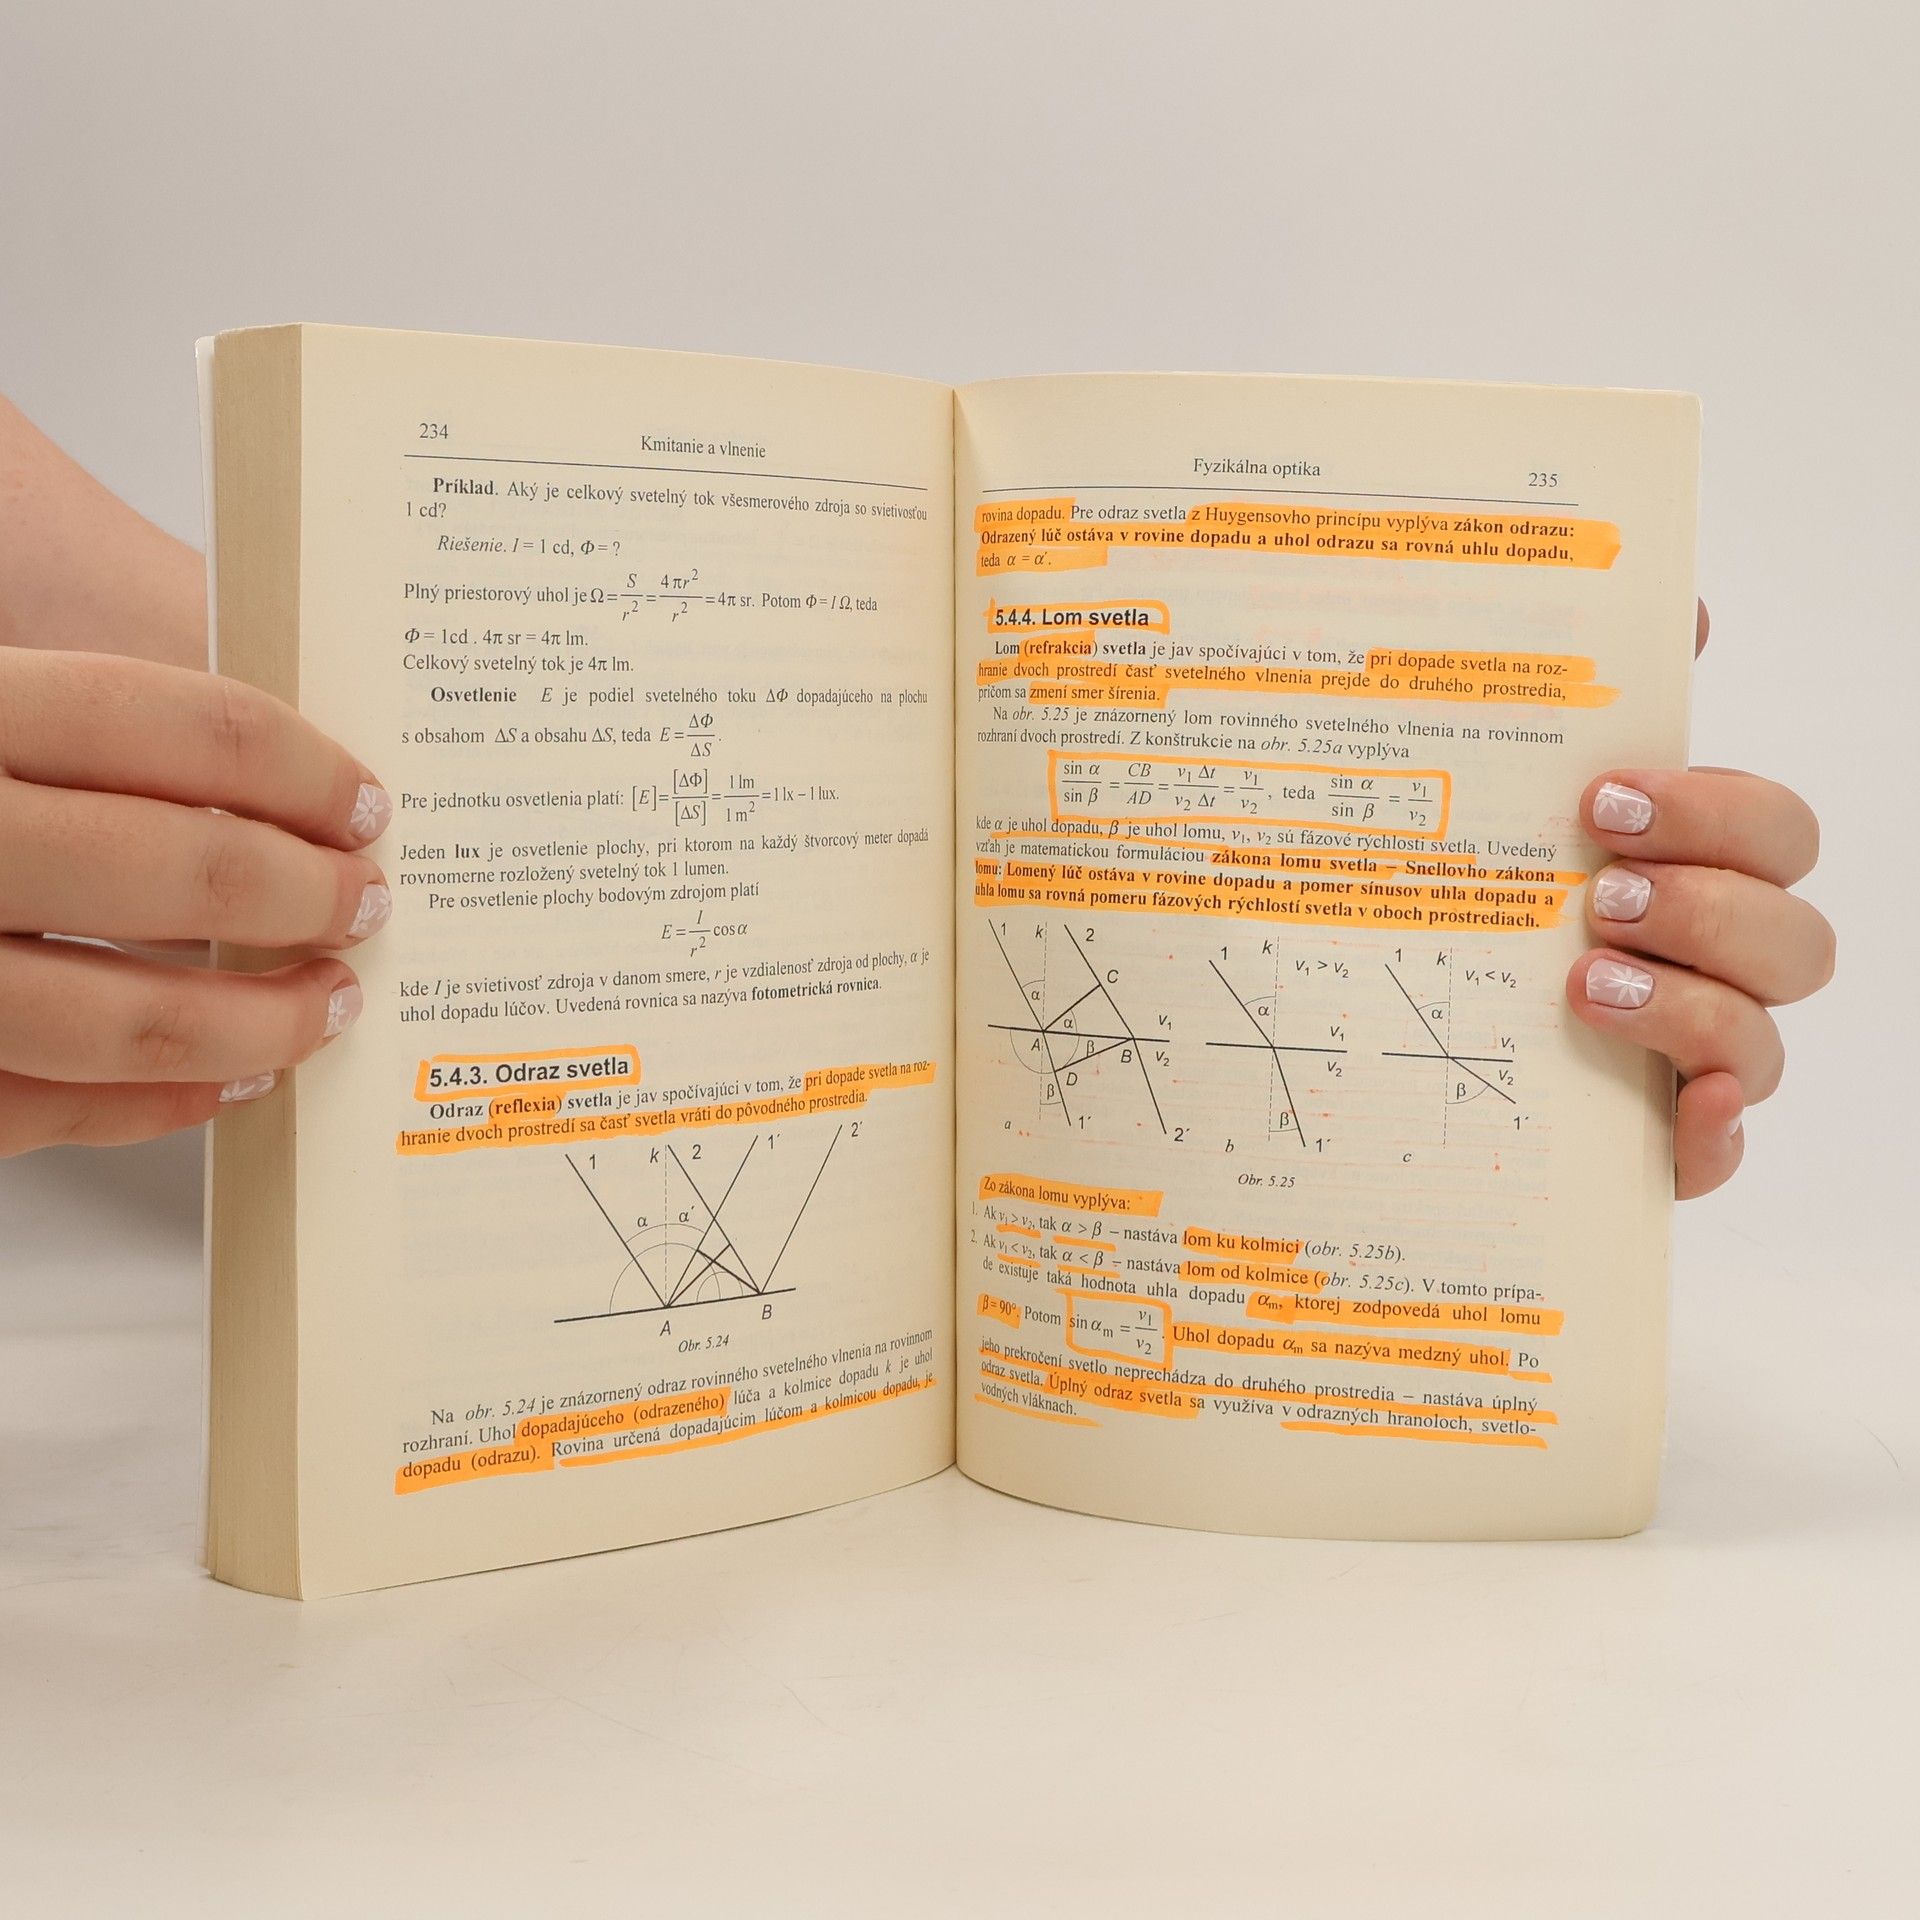 234
Kmitanie a vlnenie
Príklad. Aký je celkový svetelný tok všesmerového zdroja so svietivosťou
1 cd?
Riešenie. I = 1 cd, Φ = ?
Plný priestorový uhol je Ω = S/r² = 4πr²/r² = 4π sr. Potom Φ = I Ω, teda
Φ = 1cd . 4π sr = 4π lm.
Celkový svetelný tok je 4π lm.
Osvetlenie E je podiel svetelného toku ΔΦ dopadajúceho na plochu
s obsahom ΔS a obsahu ΔS, teda E = ΔΦ/ΔS.
Pre jednotku osvetlenia platí: [E] = [ΔΦ]/[ΔS] = 1 lm/1 m² = 1 lx – 1 lux.
Jeden lux je osvetlenie plochy, pri ktorom na každý štvorcový meter dopadá
rovnomerne rozložený svetelný tok 1 lumen.
Pre osvetlenie plochy bodovým zdrojom platí
E = I/r² cos α
kde I je svietivosť zdroja v danom smere, r je vzdialenosť zdroja od plochy, α je
uhol dopadu lúčov. Uvedená rovnica sa nazýva fotometrická rovnica.
5.4.3. Odraz svetla
Odraz (reflexia) svetla je jav spočívajúci v tom, že pri dopade svetla na roz-
hranie dvoch prostredí sa časť svetla vráti do pôvodného prostredia.
1 k 2 1´ 2´
α α´
A B
Obr. 5.24
Na obr. 5.24 je znázornený odraz rovinného svetelného vlnenia na rovinnom
rozhraní. Uhol dopadajúceho (odrazeného) lúča a kolmice dopadu k je uhol
dopadu (odrazu). Rovina určená dopadajúcim lúčom a kolmicou dopadu, je
Fyzikálna optika
235
rovina dopadu. Pre odraz svetla z Huygensovho princípu vyplýva zákon odrazu:
Odrazený lúč ostáva v rovine dopadu a uhol odrazu sa rovná uhlu dopadu,
teda α = α´.
5.4.4. Lom svetla
Lom (refrakcia) svetla je jav spočívajúci v tom, že pri dopade svetla na roz-
hranie dvoch prostredí časť svetelného vlnenia prejde do druhého prostredia,
pričom sa zmení smer šírenia.
Na obr. 5.25 je znázornený lom rovinného svetelného vlnenia na rovinnom
rozhraní dvoch prostredí. Z konštrukcie na obr. 5.25a vyplýva
sin α/sin β = CB/AD = v₁ Δt/v₂ Δt = v₁/v₂, teda sin α/sin β = v₁/v₂
kde α je uhol dopadu, β je uhol lomu, v₁, v₂ sú fázové rýchlosti svetla. Uvedený
vzťah je matematickou formuláciou zákona lomu svetla – Snellovho zákona
lomu: Lomený lúč ostáva v rovine dopadu a pomer sínusov uhla dopadu a
uhla lomu sa rovná pomeru fázových rýchlostí svetla v oboch prostrediach.
1 k 2 C α α A β B D β v₁ v₂ 1´ 2´ a
1 k v₁ > v₂ α v₁ v₂ β 1´ b
1 k v₁ < v₂ α v₁ v₂ β 1´ c
Obr. 5.25
Zo zákona lomu vyplýva:
1. Ak v₁ > v₂, tak α > β – nastáva lom ku kolmici (obr. 5.25b).
2. Ak v₁ < v₂, tak α < β – nastáva lom od kolmice (obr. 5.25c). V tomto prípa-
de existuje taká hodnota uhla dopadu αm, ktorej zodpovedá uhol lomu
β = 90°. Potom sin αm = v₁/v₂. Uhol dopadu αm sa nazýva medzný uhol. Po
jeho prekročení svetlo neprechádza do druhého prostredia – nastáva úplný
odraz svetla. Úplný odraz svetla sa využíva v odrazných hranoloch, svetlo-
vodných vláknach.